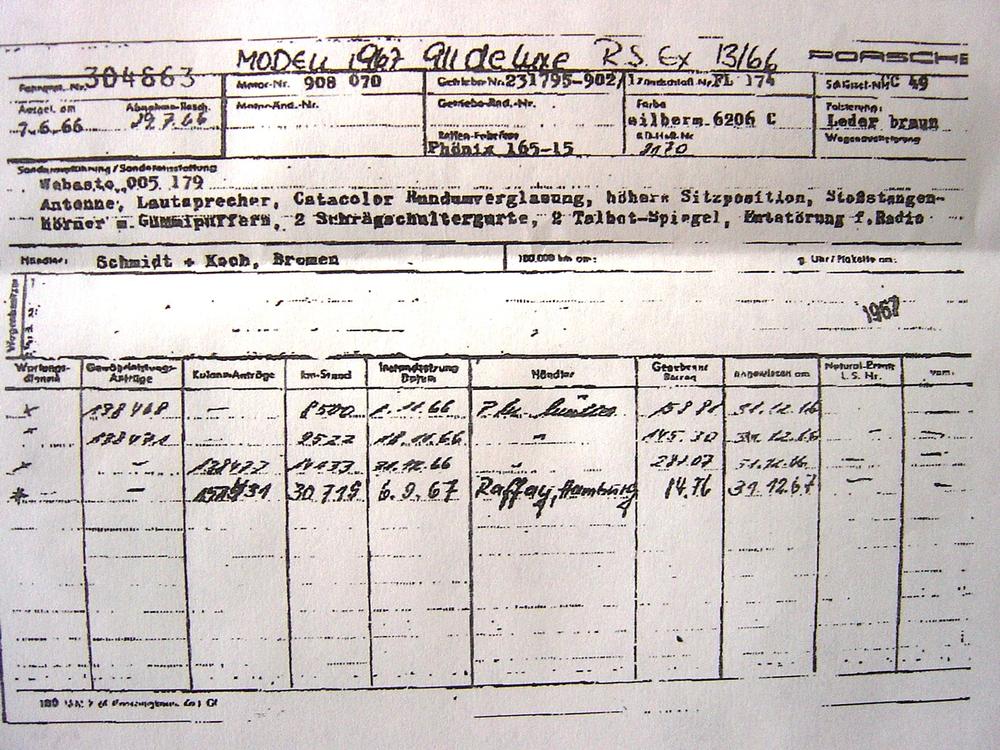 MODELL 1967 911 deluxe R.S. Ex 13/66 PORSCHE
304863 Motor-Nr. 908 070 Getriebe-Nr. 231795-902/1 FL 174 Schlüssel-Nr. CC 49
Ausgel. am Motor-Änd.-Nr. Getriebe-Änd.-Nr. Farbe Polsterung:
7.6.66 29.7.66 silberm. 6206 C Leder braun
Reifen-Fabrikat Wagenauslieferung
Phönix 165-15 2170
Sonderausführung / Sonderausstattung
Webasto 005 179
Antenne, Lautsprecher, Catacolor Rundumverglasung, höhere Sitzposition, Stoßstangen-
Hörner m. Gummipuffern, 2 Schrägschultergurte, 2 Talbot-Spiegel, Entstörung f. Radio
Händler: Schmidt + Koch, Bremen 100.000 km am: g. Uhr / Plakette am:
Wagenbesitzer
1
2:
1967
Wartungs-dienst Gewährleistungs-Anträge Kulanz-Anträge km-Stand Instandsetzung Datum Händler Gegebener Betrag angewiesen am Natural-Ersatz L. S. Nr. vom:
x 138468 — 8500 .11.66 158 81 31.12.66
138471 9522 18.11.66 " 145.30 31.12.66 — —
x — 138477 14133 31.12.66 " 281.07 31.12.66 — —
x — 30.719 6.9.67 Raffay, Hamburg 14.76 31.12.67 — —